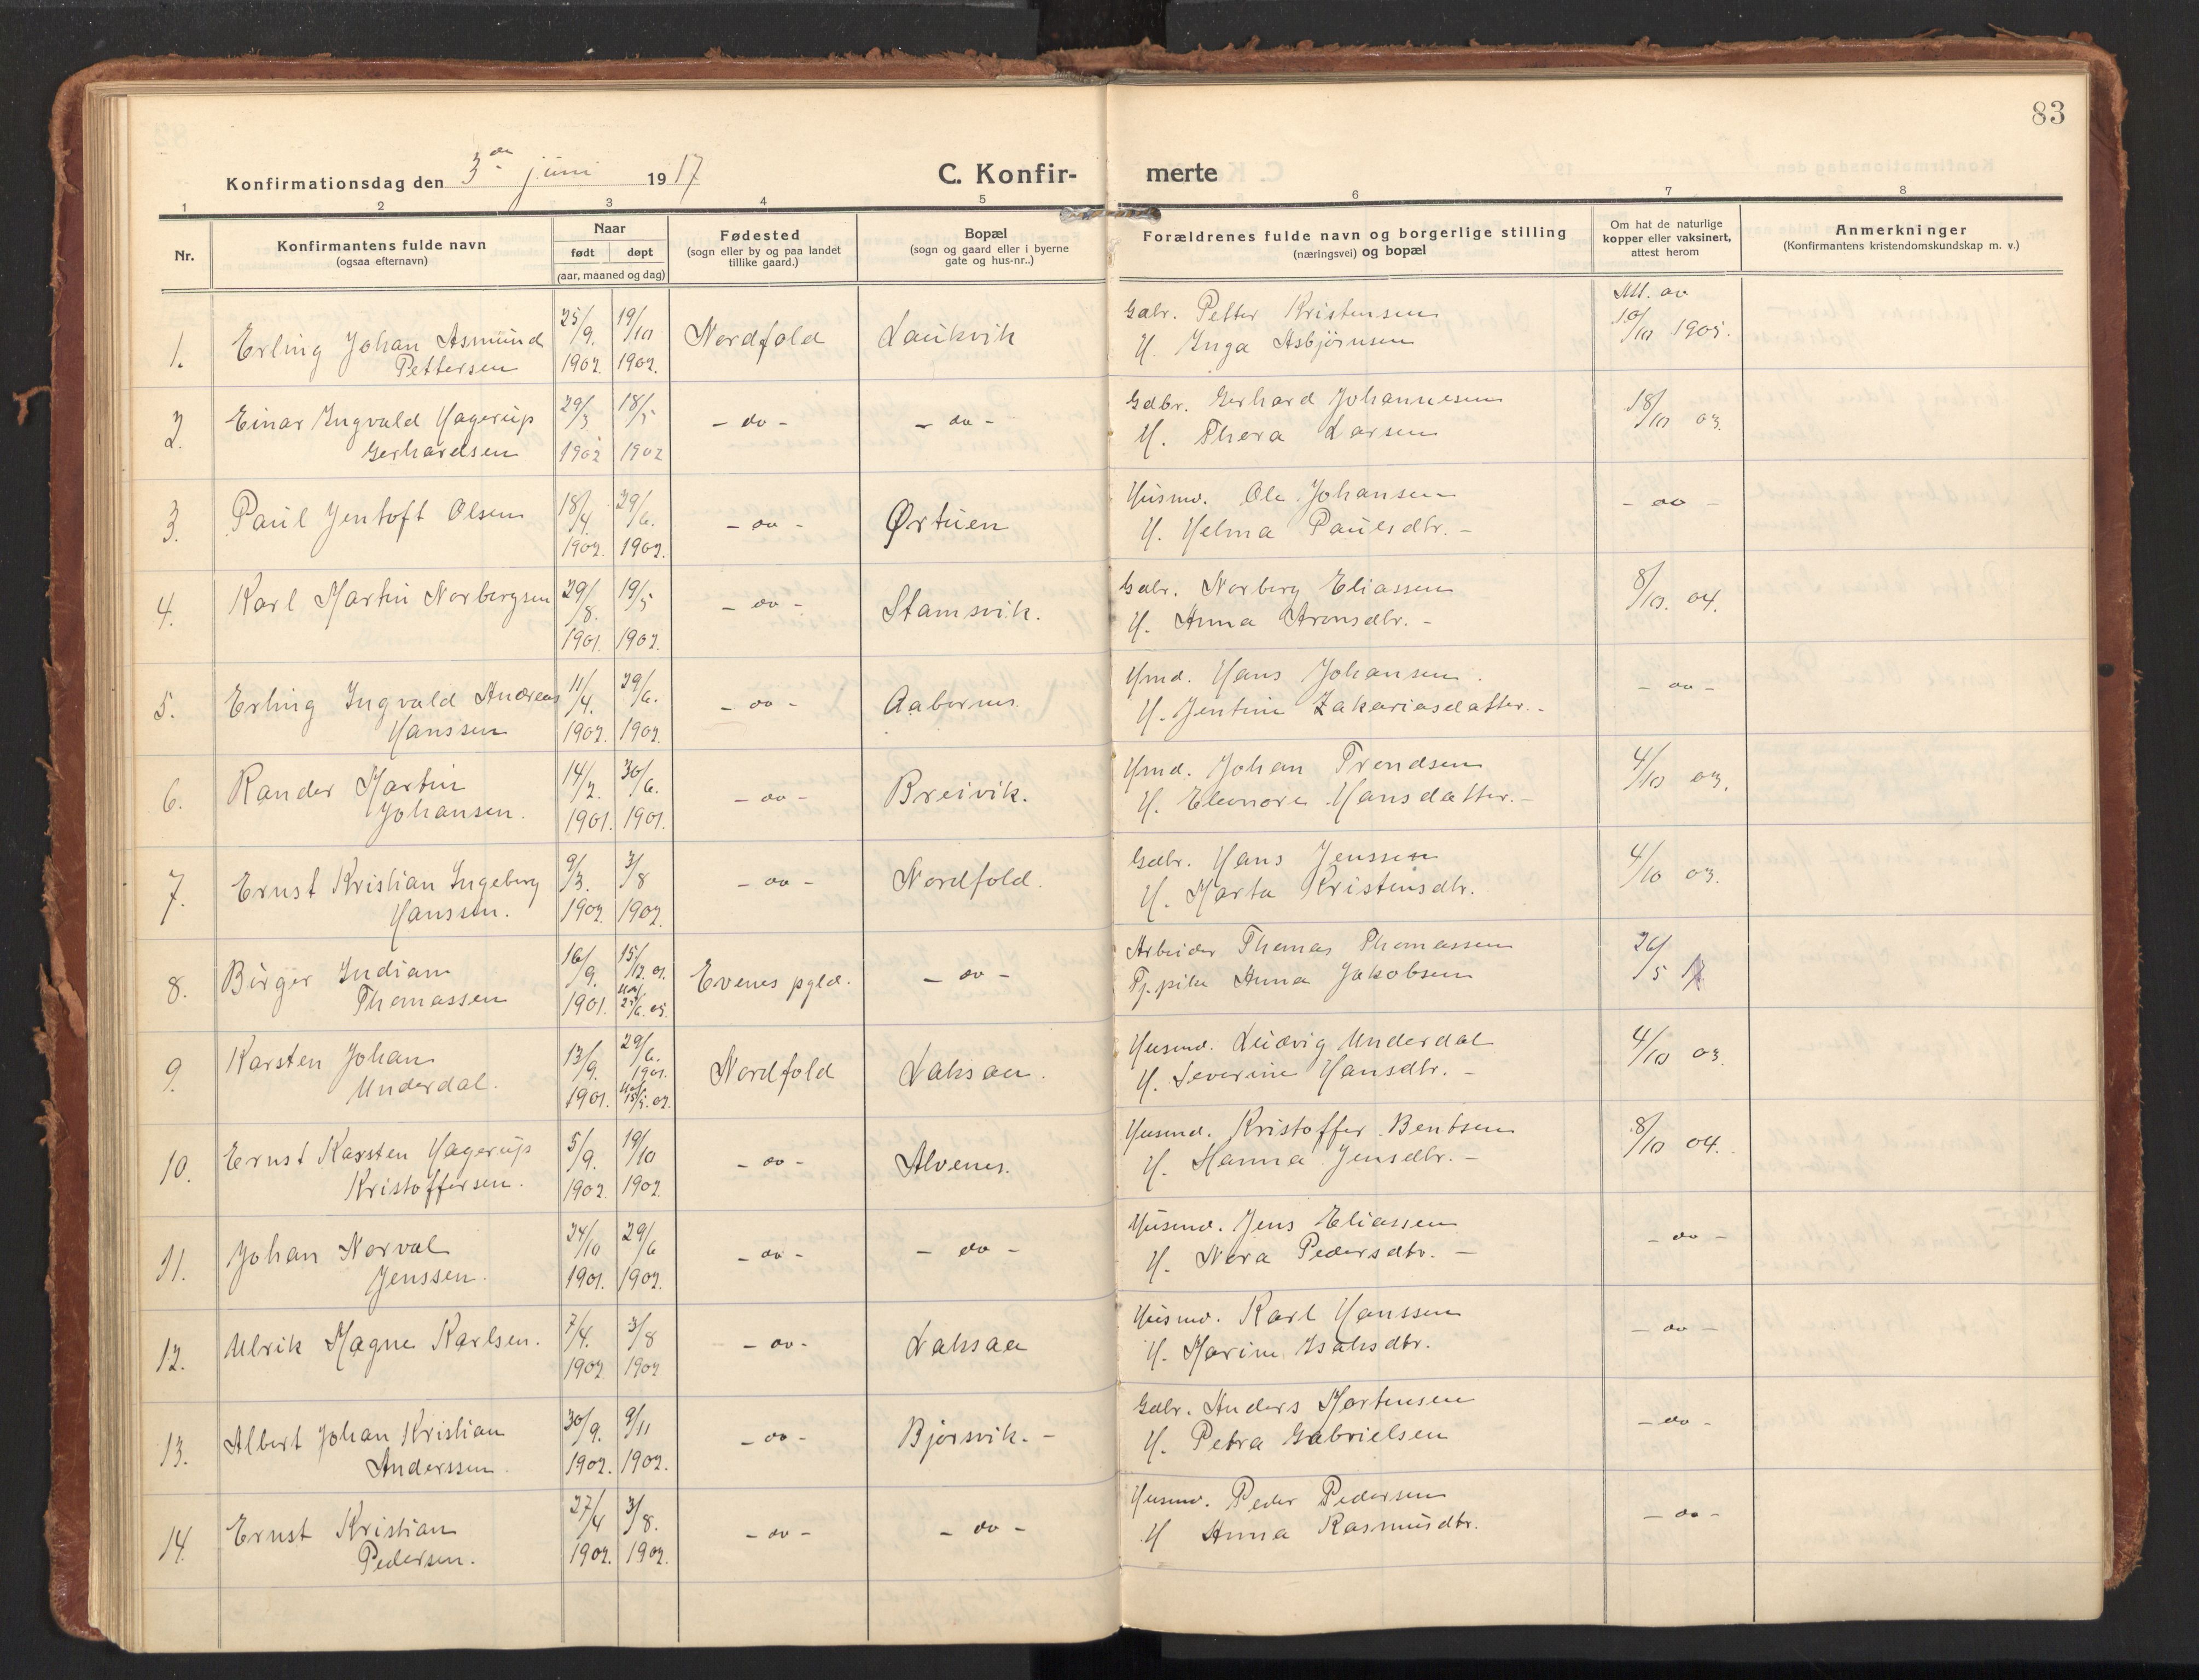 83
Konfirmationsdag den 3de juni 1917 C. Konfir- merte
1 2 3 4 5 6 7 8
Nr.
Konfirmantens fulde navn
(ogsaa efternavn)
Naar
født døpt
(aar, maaned og dag)
Fødested
(sogn eller by og paa landet
tillike gaard.)
Bopæl
(sogn og gaard eller i byerne
gate og hus-nr..)
Forældrenes fulde navn og borgerlige stilling
(næringsvei) og bopæl
Om hat de naturlige
kopper eller vaksinert,
attest herom
Anmerkninger
(Konfirmantens kristendomskundskap m. v.)
1. Erling Johan Asmund
Pettersen
25/9. 1902. 19/10 1902.
Nordfold Laukvik
Gabr. Petter Kristensen
H. Inga Asbjørnsen
Att. av
10/10 1905.
2. Einar Ingvald Hagerup
Gerhardsen
29/3 1902 18/5 1902
- do - - do -
Gdbr. Gerhard Johannesen
H. Thora Larsen
18/10 03.
3. Paul Jentoft Olsen
18/4. 1902. 29/6. 1902.
- do - Ørtuen
Husmd. Ole Johansen
H. Helma Paulsdtr. -
- do -
4. Karl Martin Norbergsen
29/8. 1901. 19/5 1902.
- do - Stamsvik.
Gabr. Norberg Eliassen
H. Anna Aronsdtr. -
8/10. 04.
5. Erling Ingvald Andreas
Hanssen
11/4. 1902. 29/6. 1902.
- do - Aabornes
Hmd. Hans Johansen.
H. Jentine Zakariasdatter. -
- do -
6. Rander Martin
Johansen.
14/2. 1901. 30/6. 1901.
- do - Breivik.
Hmd. Johan Trondsen
H. Eleonore Hansdatter. -
4/10 03.
7. Ernst Kristian Ingeberg
Hanssen.
9/3. 1902. 3/8 1902.
- do - Nordfold.
Gdbr. Hans Jenssen
H. Marta Kristensdtr.
4/10 03.
8. Birger Indian
Thomassen
16/9. 1901. 15/12. 01.
Evenes pgld. - do -
Arbeider Thomas Thomassen
Tj.pike Anna Jakobsen
26/5
9. Karsten Johan
Underdal.
13/9. 1901. 29/6. 1901.
Nordfold Laksaa.
Husmd. Ludvig Underdal
H. Severine Hansdtr. -
4/10 03.
10. Ernst Karsten Hagerup
Kristoffersen.
5/9. 1902. 19/10 1902.
- do - Alvenes.
Husmd. Kristoffer Bentsen
H. Hanna Jensdtr. -
8/10 04.
11. Johan Norval
Jenssen.
24/10 1901. 29/6 1902.
- do - - do -
Husmd. Jens Eliassen
H. Nora Pedersdtr. -
- do -
12. Ulrik Magne Karlsen.
7/4. 1902 3/8 1902
- do - Laksaa
Husmd. Karl Hanssen
H. Marine Isaksdtr.
- do -
13. Albert Johan Kristian
Anderssen.
30/9. 1902. 9/11 1902.
- do - Bjørsvik. -
Gdbr. Anders Mortensen
H. Petra Gabrielsen
- do -
14. Ernst Kristian
Pedersen.
27/4 1902. 3/8. 1902.
- do - - do -
Husmd. Peder Pedersen
H Anna Rasmusdtr.
- do -